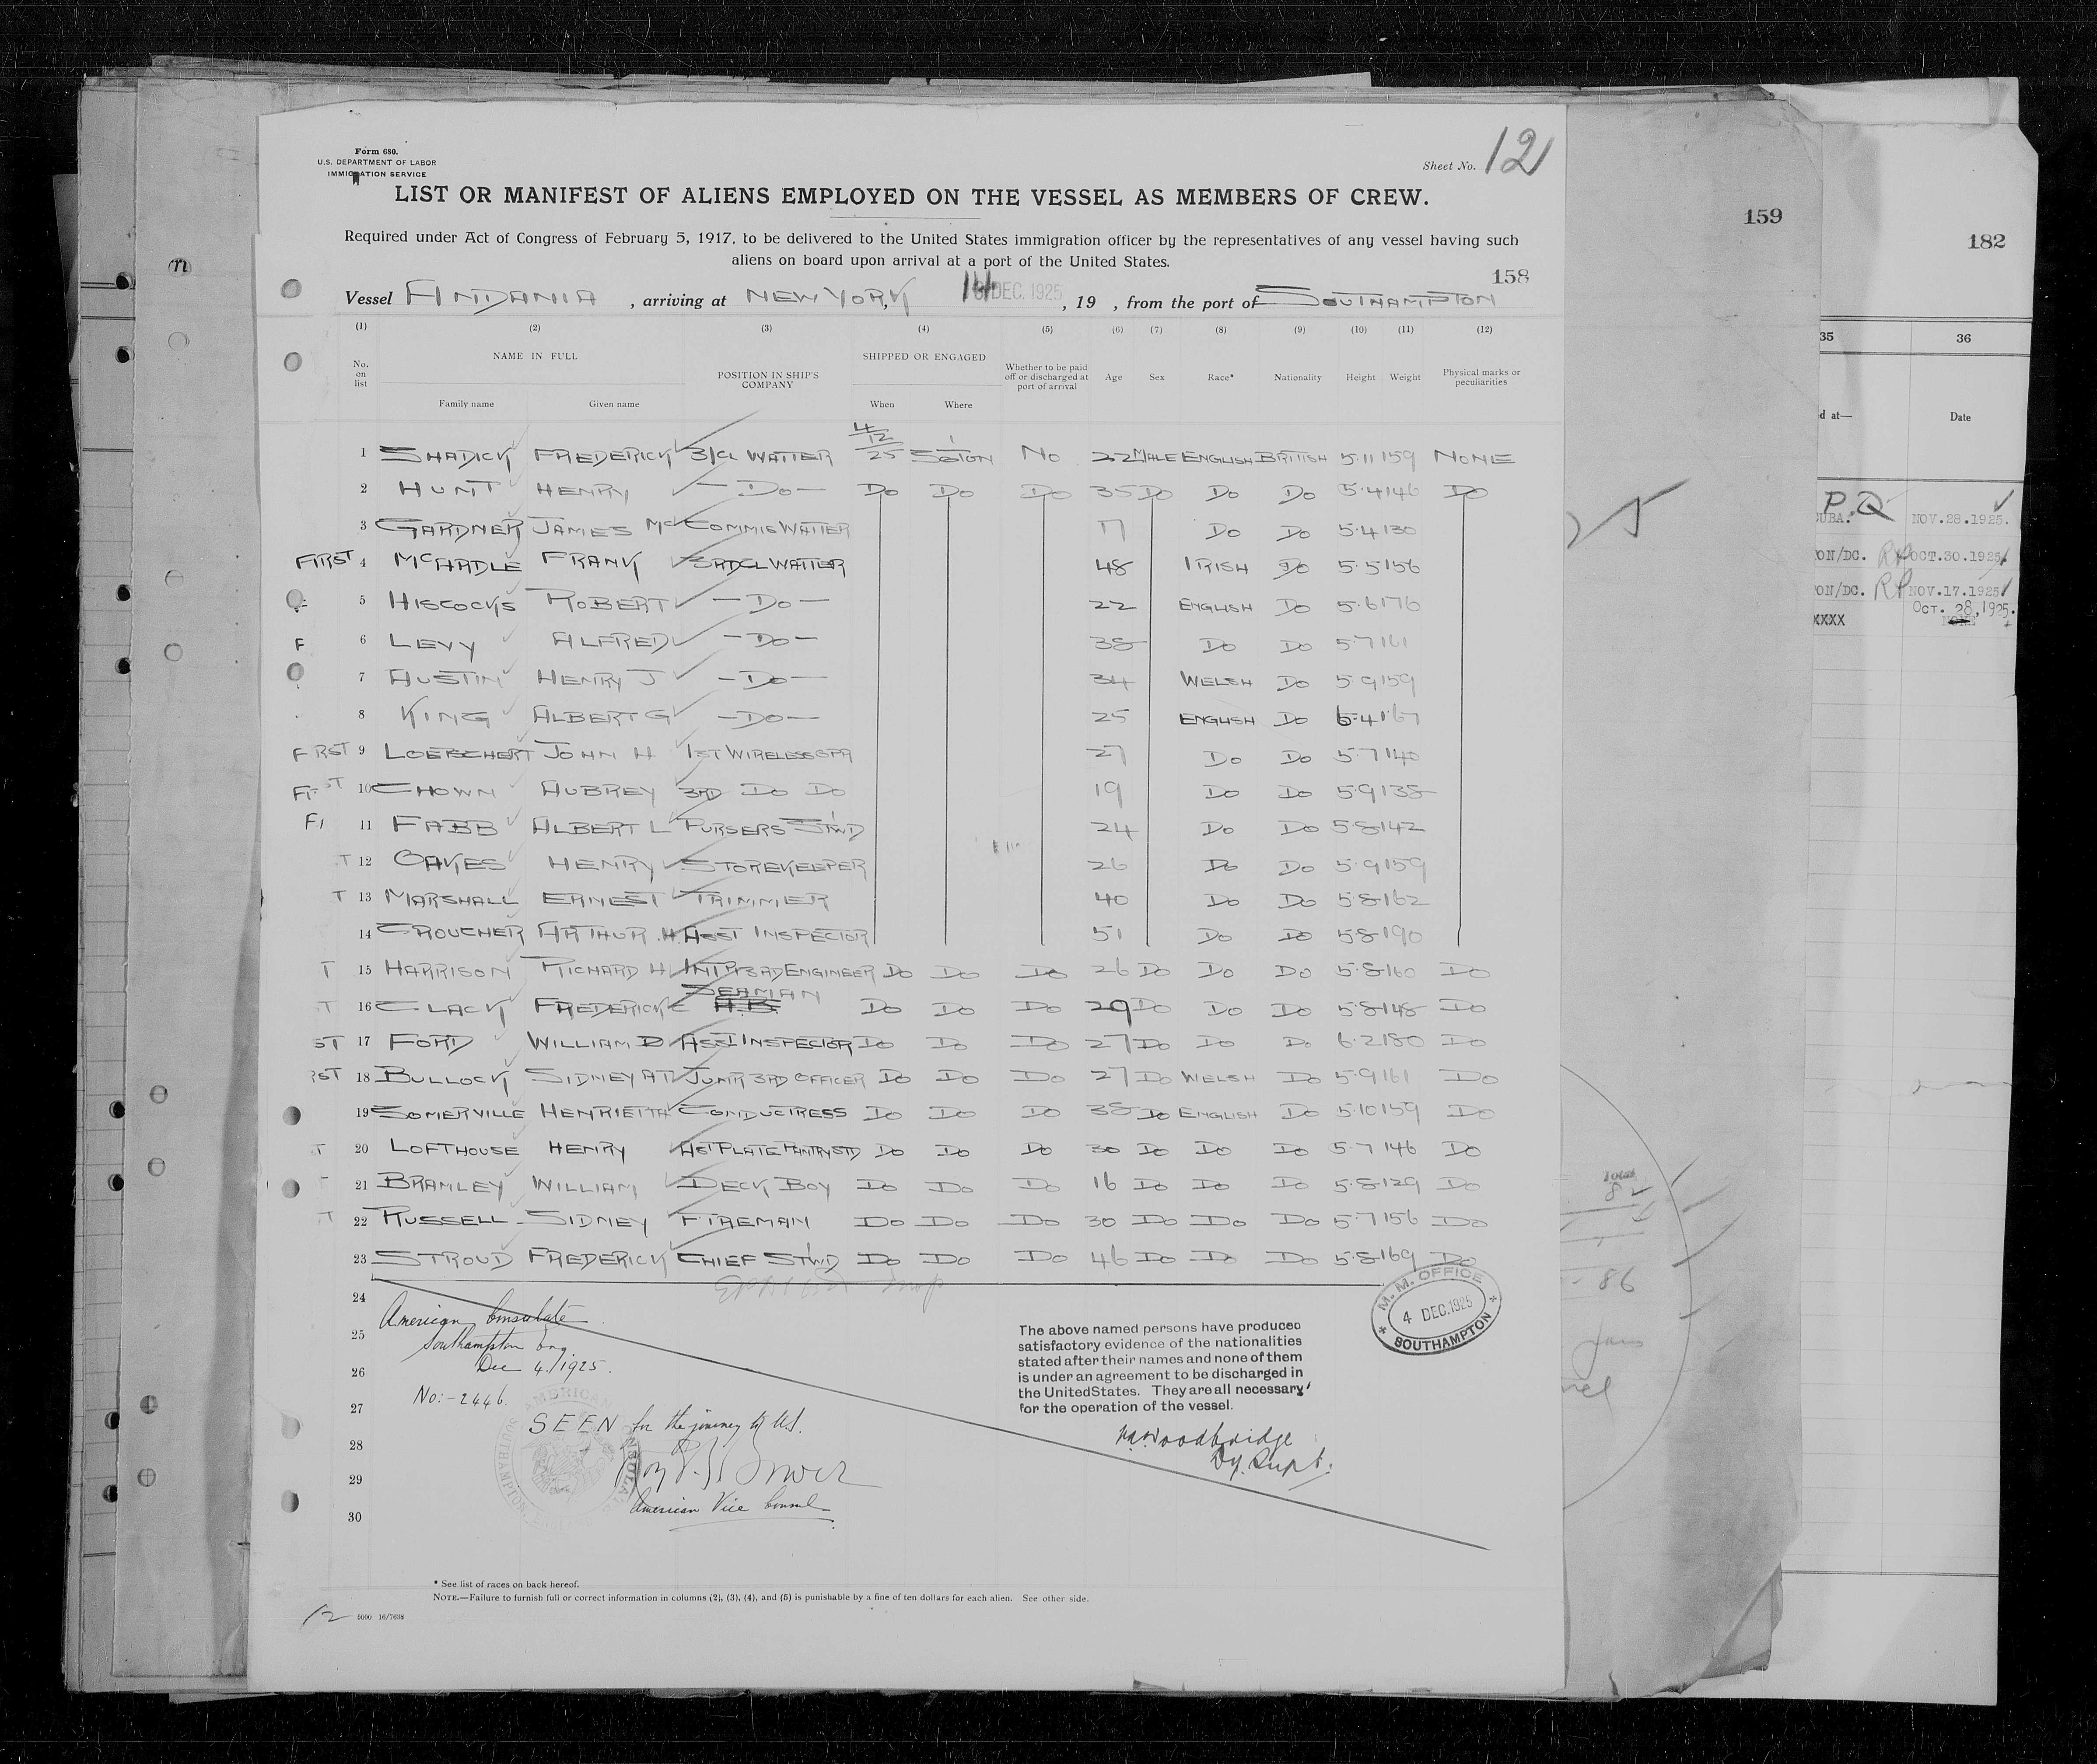 Form 680.
U.S. DEPARTMENT OF LABOR
IMMIGRATION SERVICE
Sheet No. 12
LIST OR MANIFEST OF ALIENS EMPLOYED ON THE VESSEL AS MEMBERS OF CREW.
Required under Act of Congress of February 5, 1917, to be delivered to the United States immigration officer by the representatives of any vessel having such
aliens on board upon arrival at a port of the United States.
158
Vessel ANDANIA , arriving at NEW YORK, 14 DEC. 1925 , 19 , from the port of SOUTHAMPTON
(1) (2) (3) (4) (5) (6) (7) (8) (9) (10) (11) (12)
No. on list
NAME IN FULL
Family name Given name
POSITION IN SHIP'S COMPANY
SHIPPED OR ENGAGED
When Where
Whether to be paid off or discharged at port of arrival
Age Sex Race* Nationality Height Weight
Physical marks or peculiarities
1 SHADICK FREDERICK 3/CL WAITER 4/12/25 S'TON NO 22 MALE ENGLISH BRITISH 5.11 159 NONE
2 HUNT HENRY -DO- DO DO DO 35 DO DO DO 5.4 146 DO
3 GARDNER JAMES MC COMMIS WAITER 17 DO DO 5.4 130
FIRST 4 MCARDLE FRANK 3RDCL WAITER 48 IRISH DO 5.5 156
5 HISCOCKS ROBERT -DO- 22 ENGLISH DO 5.6 176
F 6 LEVY ALFRED -DO- 38 DO DO 5.7 161
7 AUSTIN HENRY J -DO- 34 WELSH DO 5.9 159
8 KING ALBERT G -DO- 25 ENGLISH DO 5.4 167
F RST 9 LOERSCHERT JOHN H 1ST WIRELESS OPR 27 DO DO 5.7 140
10 CHOWN AUBREY 3RD DO DO 19 DO DO 5.9 138
FI 11 FABB ALBERT L PURSERS STWD 24 DO DO 5.8 142
T 12 OAKES HENRY STOREKEEPER 26 DO DO 5.9 159
T 13 MARSHALL ERNEST TRIMMER 40 DO DO 5.8 162
14 CROUCHER ARTHUR .H. ASST INSPECTOR 51 DO DO 5.8 190
T 15 HARRISON RICHARD H INTR 3RD ENGINEER DO DO DO 26 DO DO DO 5.8 160 DO
SEAMAN
T 16 CLACK FREDERICK C A.B. DO DO DO 29 DO DO DO 5.8 148 DO
ST 17 FORD WILLIAM D ASST INSPECTOR DO DO DO 27 DO DO DO 6.2 180 DO
RST 18 BULLOCK SIDNEY A T JUNR 3RD OFFICER DO DO DO 27 DO WELSH DO 5.9 161 DO
19 SOMERVILLE HENRIETTA CONDUCTRESS DO DO DO 38 DO ENGLISH DO 5.10 159 DO
T 20 LOFTHOUSE HENRY AST PLATE PANTRY STD DO DO DO 30 DO DO DO 5.7 146 DO
21 BRAMLEY WILLIAM DECK BOY DO DO DO 16 DO DO DO 5.8 129 DO
T 22 RUSSELL SIDNEY FIREMAN DO DO DO 30 DO DO DO 5.7 156 DO
23 STROUD FREDERICK CHIEF STWD DO DO DO 46 DO DO DO 5.8 169 DO
24
25
26
27
28
29
30
American Consulate
Southampton Eng
Dec 4./1925.
No:-2446.
SEEN for the journey to U.S.
American Vice Consul
The above named persons have produced
satisfactory evidence of the nationalities
stated after their names and none of them
is under an agreement to be discharged in
the United States. They are all necessary
for the operation of the vessel.
Woodbridge
Dy. Supt.
M. M. OFFICE
4 DEC. 1925
SOUTHAMPTON
* See list of races on back hereof.
NOTE.—Failure to furnish full or correct information in columns (2), (3), (4), and (5) is punishable by a fine of ten dollars for each alien. See other side.
12 5000 16/7638
159
Total
86
182
35 36
d at— Date
P.Q
CUBA. NOV.28.1925.
ON/DC. OCT.30.1925
ON/DC. NOV.17.1925
XXXX OCT. 28, 1925.
NONE